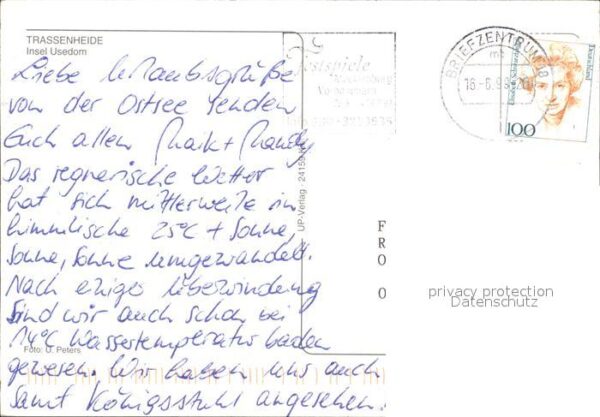 TRASSENHEIDE
Insel Usedom
Liebe Urlaubsgrüße
von der Ostsee senden
Euch allen Maik + Mandy
Das regnerische Wetter
hat sich mittlerweile in
himmlische 25°C + Sonne,
Sonne, Sonne umgewandelt.
Nach einiger Überwindung
sind wir auch schon bei
14°C Wassertemperatur baden
gewesen. Wir haben uns auch
samt Königsstuhl angesehen.
Foto: U. Peters
UP-Verlag 24159
Festspiele
Mecklenburg
Vorpommern
BRIEFZENTRUM
16.-6.99
100
F
R
O
O
privacy protection
Datenschutz